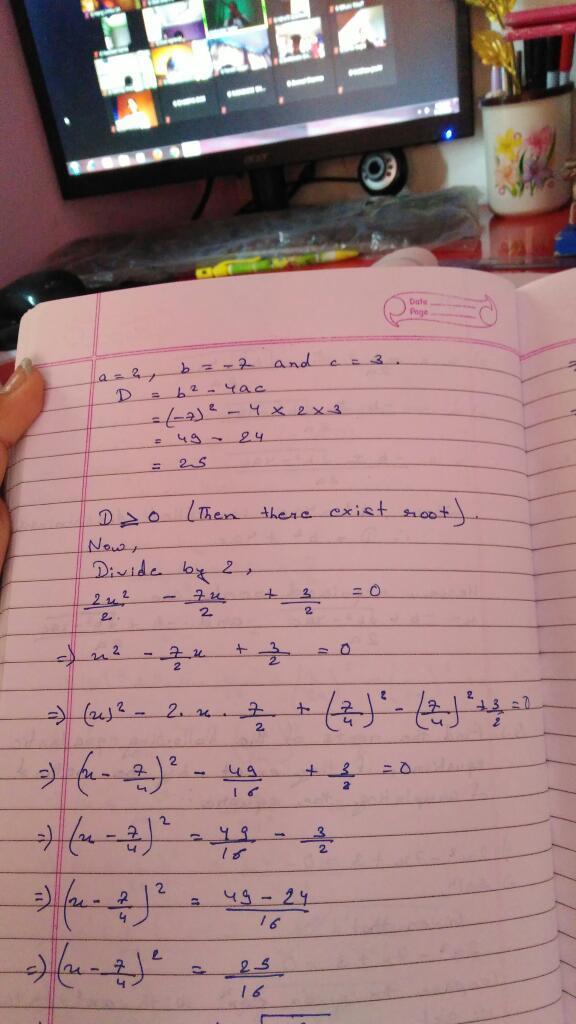 acer
Date
Page
a = 2, b = -7 and c = 3.
D = b² - 4ac
= (-7)² - 4 × 2 × 3
= 49 - 24
= 25
D ≥ 0 (Then there exist root).
Now,
Divide by 2,
2x²/2 - 7x/2 + 3/2 = 0
⇒) x² - 7/2 x + 3/2 = 0
⇒) (x)² - 2 . x . 7/2 + (7/4)² - (7/4)² + 3/2 = 0
⇒) (x - 7/4)² - 49/16 + 3/2 = 0
⇒) (x - 7/4)² = 49/16 - 3/2
⇒) (x - 7/4)² = 49 - 24/16
⇒) (x - 7/4)² = 25/16